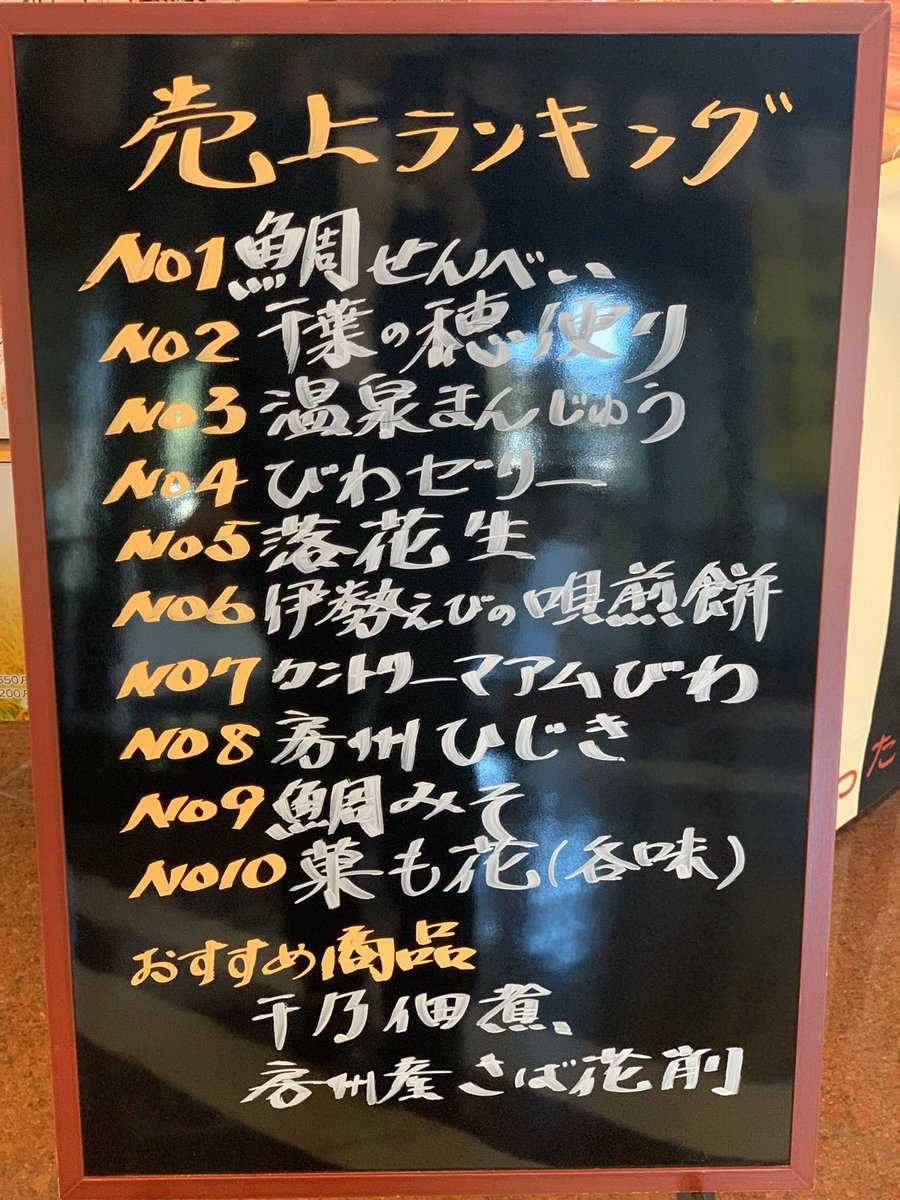 売上ランキング
No1 鯛せんべい
No2 千葉の穂便り
No3 温泉まんじゅう
No4 びわゼリー
No5 落花生
No6 伊勢えびの唄煎餅
No7 カントリーマアムびわ
No8 房州ひじき
No9 鯛みそ
No10 菓も花(各味)
おすすめ商品
千乃佃煮、
房州産さば花削
550
200
った